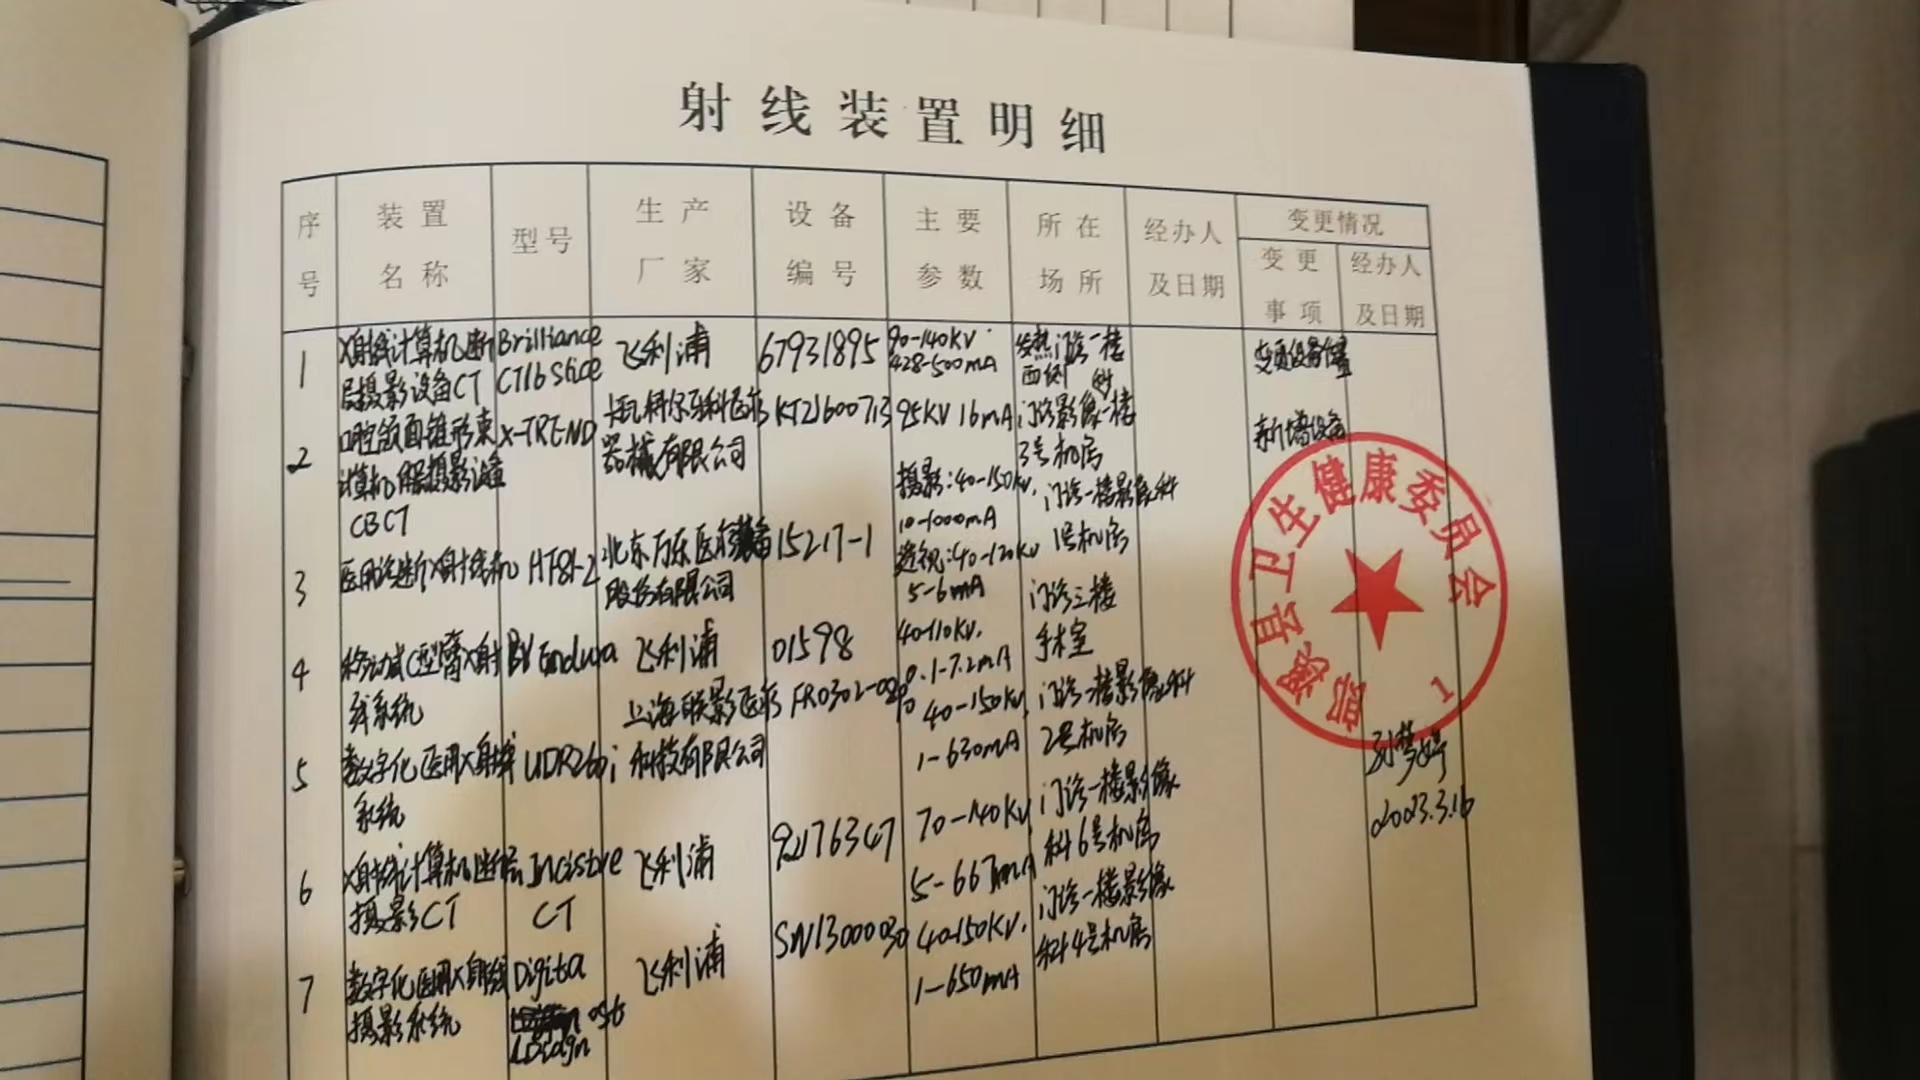 射线装置明细
序号 装置名称 型号 生产厂家 设备编号 主要参数 所在场所 经办人及日期 变更情况
变更事项 经办人及日期
1 X射线计算机断 Brilliance 飞利浦 67931895 90-140KV 发热门诊一楼 变更设备位置
层摄影设备CT CT16 Slice 428-500mA 西侧
2 口腔颌面锥形束 X-TREND 卡瓦科尔牙科医疗 KT21600713 95KV 16mA 门诊影像一楼 新增设备
计算机体层摄影设备 器械有限公司 3号机房
CBCT
3 医用诊断X射线机 HF81-2 北京万东医疗装备 15217-1 摄影:40-150KV, 门诊一楼影像科
股份有限公司 10-1000mA 1号机房
透视:40-120KV
5-6mA
4 移动式C型臂X射 BV Endura 飞利浦 01598 40-110KV, 门诊三楼
线系统 0.1-7.2mA 手术室
5 数字化医用X射线 UDR266i 上海联影医疗 40-150KV, 门诊一楼影像科
系统 科技有限公司 1-630mA 2号机房
6 X射线计算机断层 飞利浦 92176347 70-140KV, 门诊一楼影像
摄影CT CT 5-667mA 科6号机房
7 数字化医用X射线 飞利浦 SN13000030 40-150KV, 门诊一楼影像
摄影系统 1-650mA 科4号机房
郎溪县卫生健康委员会
1
2023.3.16